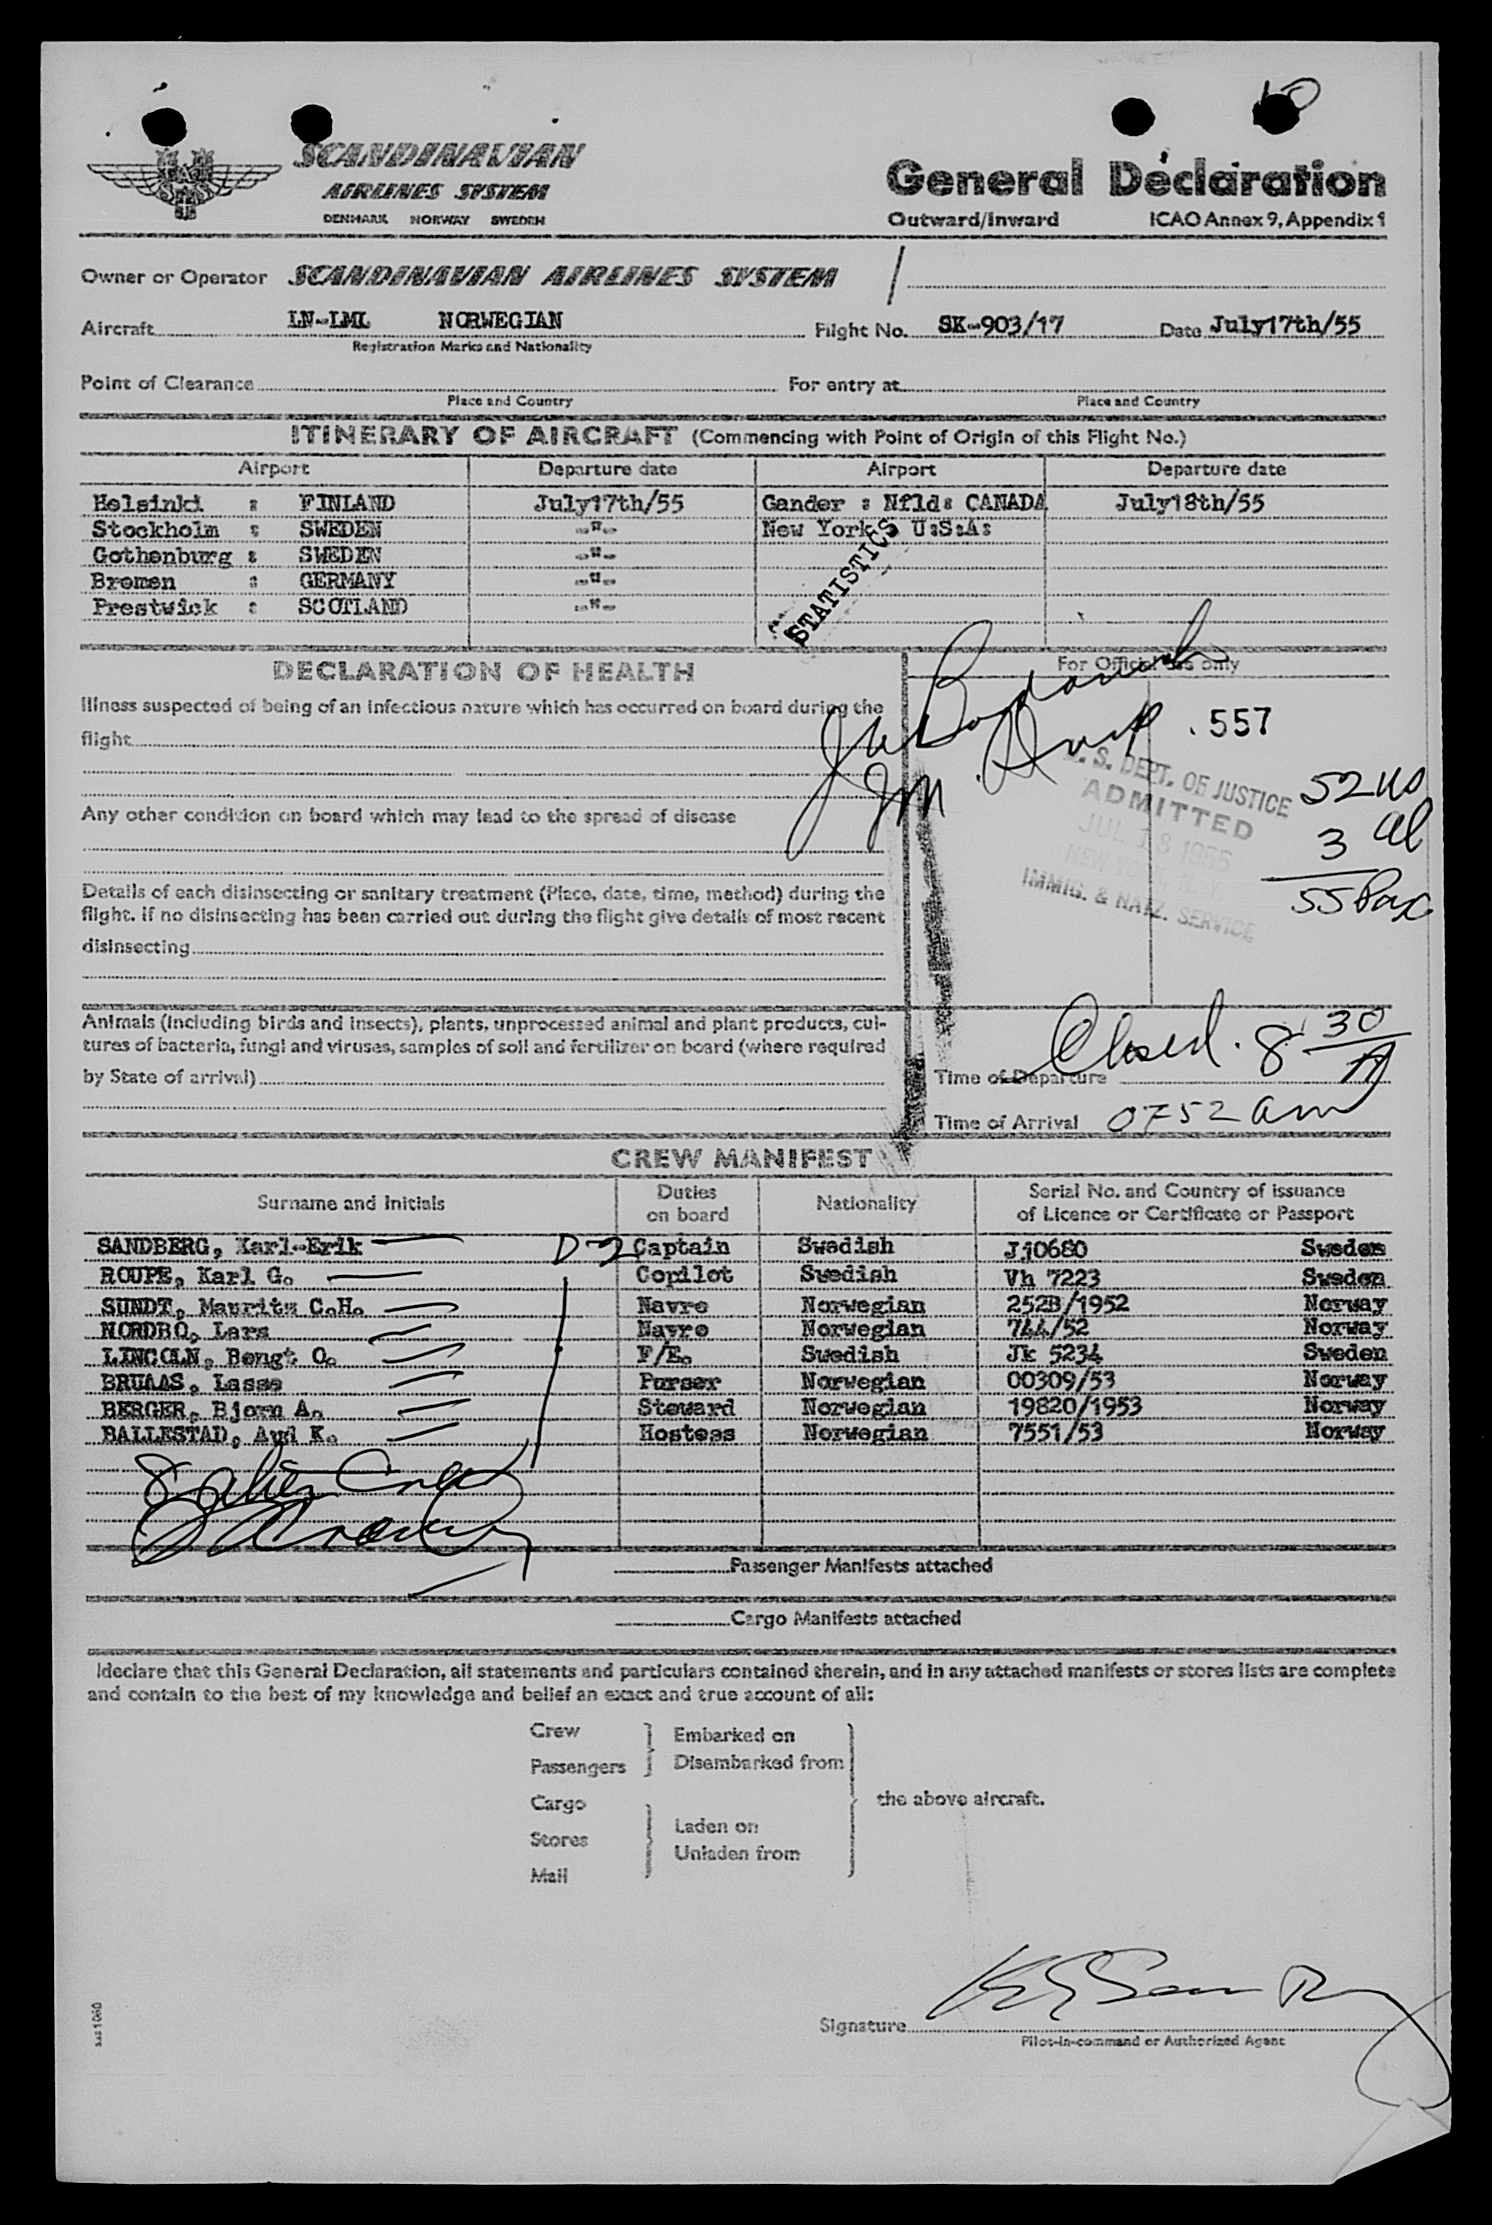 10
SAS
SCANDINAVIAN
AIRLINES SYSTEM
DENMARK NORWAY SWEDEN
General Declaration
Outward/Inward ICAO Annex 9, Appendix 1
Owner or Operator SCANDINAVIAN AIRLINES SYSTEM
Aircraft LN-LML NORWEGIAN Flight No. SK-903/17 Date July17th/55
Registration Marks and Nationality
Point of Clearance For entry at
Place and Country Place and Country
ITINERARY OF AIRCRAFT (Commencing with Point of Origin of this Flight No.)
Airport Departure date Airport Departure date
Helsinki : FINLAND July17th/55 Gander : Nfld: CANADA July18th/55
Stockholm : SWEDEN -"- New York: U:S:A:
Gothenburg : SWEDEN -"-
Bremen : GERMANY -"-
Prestwick : SCOTLAND -"-
STATISTICS
DECLARATION OF HEALTH
For Official use only
Illness suspected of being of an infectious nature which has occurred on board during the
flight
557
U. S. DEPT. OF JUSTICE
ADMITTED
JUL 18 1955
IMMIG. & NATZ. SERVICE
52 us
3 al
55 Pax
Any other condition on board which may lead to the spread of disease
Details of each disinsecting or sanitary treatment (Place, date, time, method) during the
flight. If no disinsecting has been carried out during the flight give details of most recent
disinsecting
Animals (including birds and insects), plants, unprocessed animal and plant products, cul-
tures of bacteria, fungi and viruses, samples of soil and fertilizer on board (where required
by State of arrival)
Closed. 8 30/A
Time of Departure
Time of Arrival 0752 am
CREW MANIFEST
Surname and Initials Duties on board Nationality Serial No. and Country of issuance of Licence or Certificate or Passport
SANDBERG, Karl-Erik D-2 Captain Swedish Jj0680 Sweden
ROUPE, Karl G. Copilot Swedish Vh 7223 Sweden
SUNDT, Mauritz C.H. Navro Norwegian 252B/1952 Norway
NORDBO, Lars Navro Norwegian 744/52 Norway
LINCOLN, Bengt O. F/E. Swedish Jk 5234 Sweden
BRUAAS, Lasse Purser Norwegian 00309/53 Norway
BERGER, Bjorn A. Steward Norwegian 19820/1953 Norway
BALLESTAD, Aud K. Hostess Norwegian 7551/53 Norway
8 alien Crew
Passenger Manifests attached
Cargo Manifests attached
I declare that this General Declaration, all statements and particulars contained therein, and in any attached manifests or stores lists are complete
and contain to the best of my knowledge and belief an exact and true account of all:
Crew Embarked on
Passengers Disembarked from
Cargo the above aircraft.
Stores Laden on
Mail Unladen from
Signature
Pilot-in-command or Authorized Agent
sas 1060